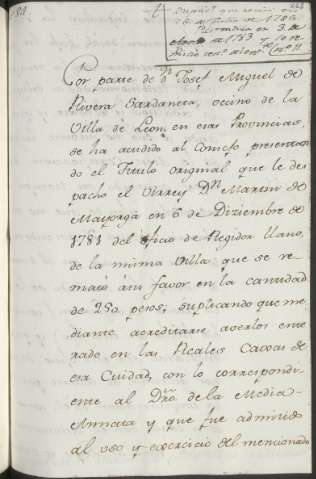 Por parte de Dn Josef Miguel de
Rivera Sardaneta, vecino de la
Villa de Leon, en esas Provincias,
se ha acudido al Consejo presentan
do el Titulo original que le des
pachó el Virrey Dn Martin de
Mayorga en 6 de Diziembre de
1781 del oficio de Regidor llano,
de la misma Villa, que se re
mató ási favor en la cantidad
de 250 pesos, suplicando que me
diante acreditarse averlos ente
rado en las Reales Caxas de
esa Ciudad, con lo correspondi
ente al Dro de la Media
Annata y que fue admitido
al uso y exercicio del mencionado